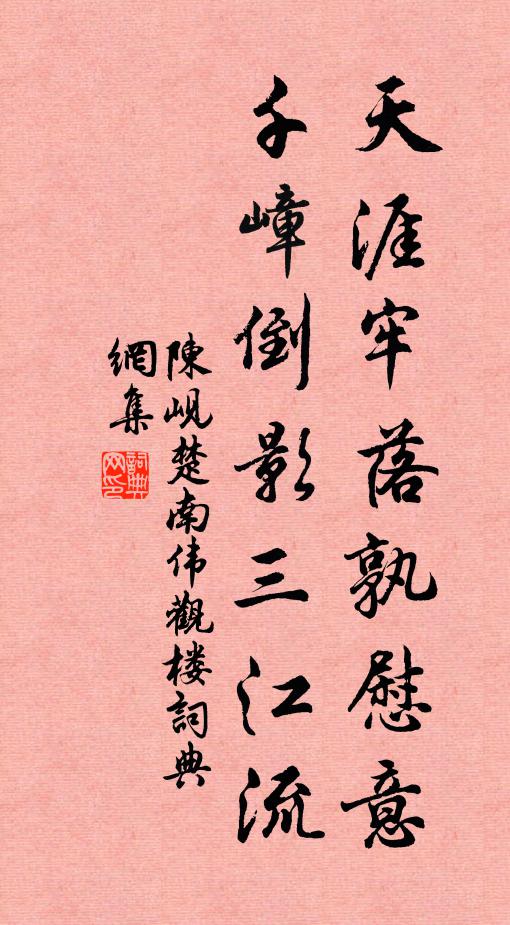 天涯牢落孰慰意
千嶂倒影三江流
陳峴楚南伟觀楼詞典
網集
詞典网印